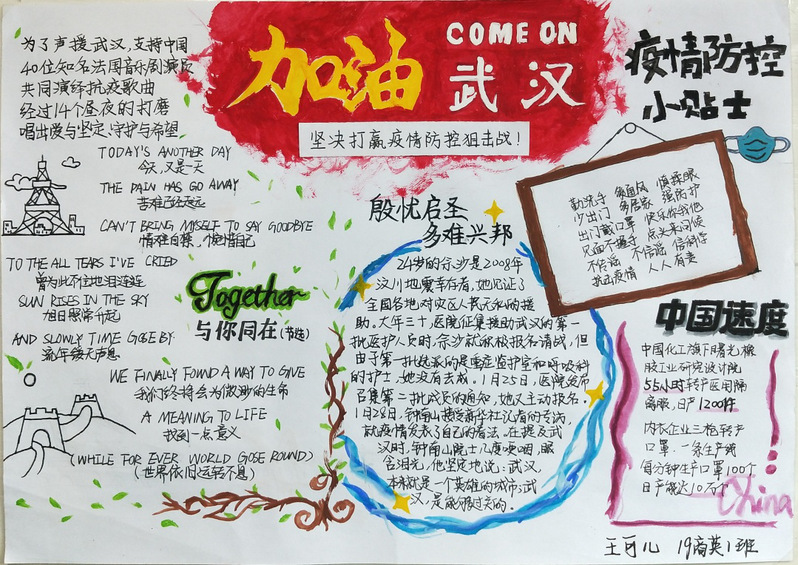 为了声援武汉,支持中国
40位知名法国音乐剧演员
共同演绎抗疫歌曲
经过14个昼夜的打磨
唱出爱与坚定,守护与希望
加油
COME ON
武汉
坚决打赢疫情防控狙击战!
疫情防控
小贴士
TODAY'S ANOTHER DAY
今天,又是一天
THE PAIN HAS GO AWAY
苦难已经走远
CAN'T BRING MYSELF TO SAY GOODBYE
情难自禁
TO THE ALL TEARS I'VE CRIED
曾为此不住地泪涟涟
SUN RISES IN THE SKY
旭日照常升起
AND SLOWLY TIME GOSE BY
流年缓无声息
WE FINALLY FOUND A WAY TO GIVE
我们终将会为微渺的生命
A MEANING TO LIFE
找到一点意义
(WHILE FOR EVER WORLD GOSE ROUND)
(世界依旧运转不息)
Together
与你同在(节选)
殷忧启圣
多难兴邦
24岁的佘沙是2008年
汶川地震幸存者,她见证了
全国各地对灾区人民无私的援
助。大年三十,医院征集援助武汉的第一
批医护人员时,佘沙就积极报名请战,但
由于第一批选派的是重症监护室和呼吸科
的护士,她没有去成。1月25日,医院发布
召集第二批成员的通知,她又主动报名。
1月28日,钟南山接受新华社记者的专访,
就疫情发表了自己的看法。在提及武
汉时,钟南山院士几度哽咽,眼
含泪光,他坚定地说:武汉,
本来就是一个英雄的城市,武
汉,是能够过关的。
勤洗手 多通风 慎揉眼
少出门 多居家 强防护
出门戴口罩 快乐你我他
见面不握手 点头来问候
不传谣 不信谣 信科学
抗击疫情 人人有责
中国速度
中国化工旗下曙光橡
胶工业研究设计院
55小时转产医用隔
离眼,日产1200件
内衣企业三枪转产
口罩,一条生产线
每分钟生产口罩100个
日产接近10万个
China
王可儿 19商英1班